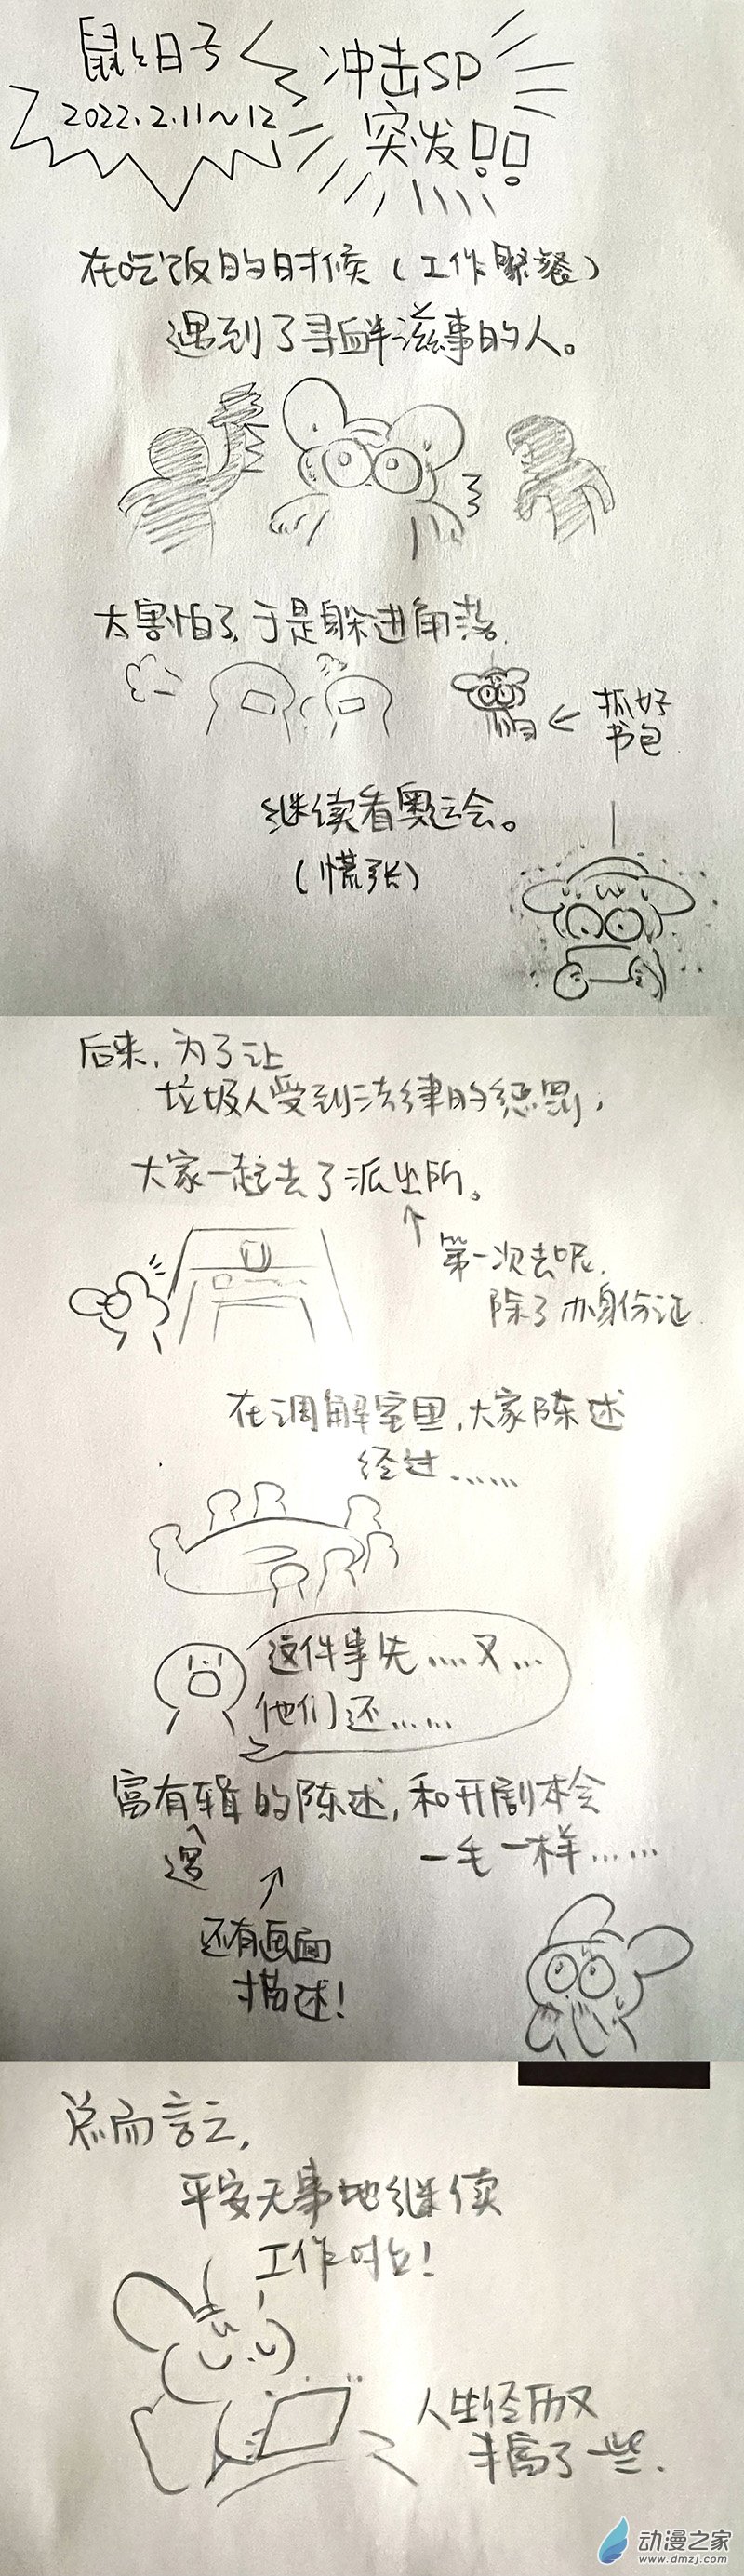 鼠绘日子
2022.2.11~12
冲击SP
突发!!
在吃饭的时候(工作聚餐)
遇到了寻衅滋事的人。
太害怕了,于是躲进角落.
抓好
书包
继续看奥运会。
(慌张)
后来,为了让
垃圾人受到法律的惩罚,
大家一起去了派出所。
第一次去呢.
除了办身份证.
在调解室里,大家陈述
经过......
这件事先....又...
他们还......
富有逻辑的陈述,和开剧本会
一毛一样......
还有画面
描述!
总而言之,
平安无事地继续
工作啦!
人生经历又
丰富了一些.
动漫之家
www.dmzj.com